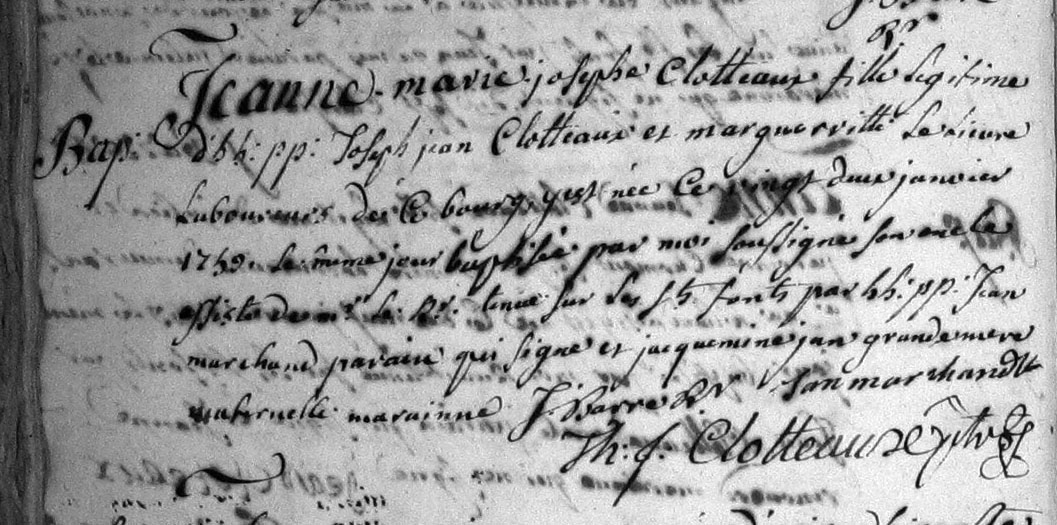 Rr
Jeanne marie josephe Clotteaux fille legitime
Bap: d'hh: pp: Joseph jean Clotteaux et margueritte Le lieure
Laboureurs de Ce bourg. y est née Ce vingt deux janvier
1759. Le même jour baptisée par moi soussigné son oncle
assisté de mr. le Rr. tenue sur les sts. fonts par hh: pp: Jean
marchand parain qui signe et jacquemine jan grandemere
maternelle marainne J. Barre Rr Jan marchandt
Th: f. Clotteaux ptre